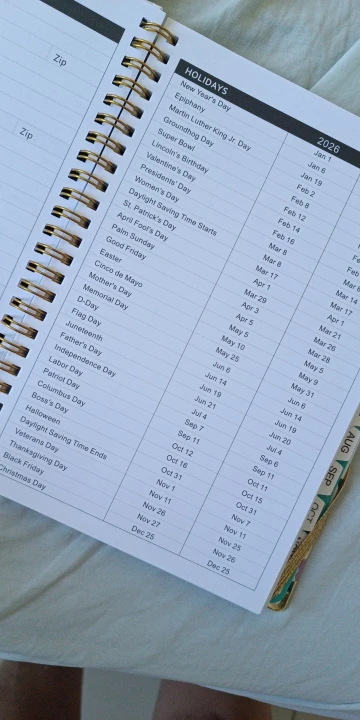 Zip
Zip
HOLIDAYS 2026
New Year's Day Jan 1
Epiphany Jan 6
Martin Luther King Jr. Day Jan 19
Groundhog Day Feb 2
Super Bowl Feb 8
Lincoln's Birthday Feb 12
Valentine's Day Feb 14
Presidents' Day Feb 16
Women's Day Mar 8
Daylight Saving Time Starts Mar 8
St. Patrick's Day Mar 17
April Fool's Day Apr 1
Palm Sunday Mar 29 Mar 21
Good Friday Apr 3 Mar 26
Easter Apr 5 Mar 28
Cinco de Mayo May 5 May 5
Mother's Day May 10 May 9
Memorial Day May 25 May 31
D-Day Jun 6 Jun 6
Flag Day Jun 14 Jun 14
Juneteenth Jun 19 Jun 19
Father's Day Jun 21 Jun 20
Independence Day Jul 4 Jul 4
Labor Day Sep 7 Sep 6
Patriot Day Sep 11 Sep 11
Columbus Day Oct 12 Oct 11
Boss's Day Oct 16 Oct 15
Halloween Oct 31 Oct 31
Daylight Saving Time Ends Nov 1 Nov 7
Veterans Day Nov 11 Nov 11
Thanksgiving Day Nov 26 Nov 25
Black Friday Nov 27 Nov 26
Christmas Day Dec 25 Dec 25
AUG
SEP
OCT